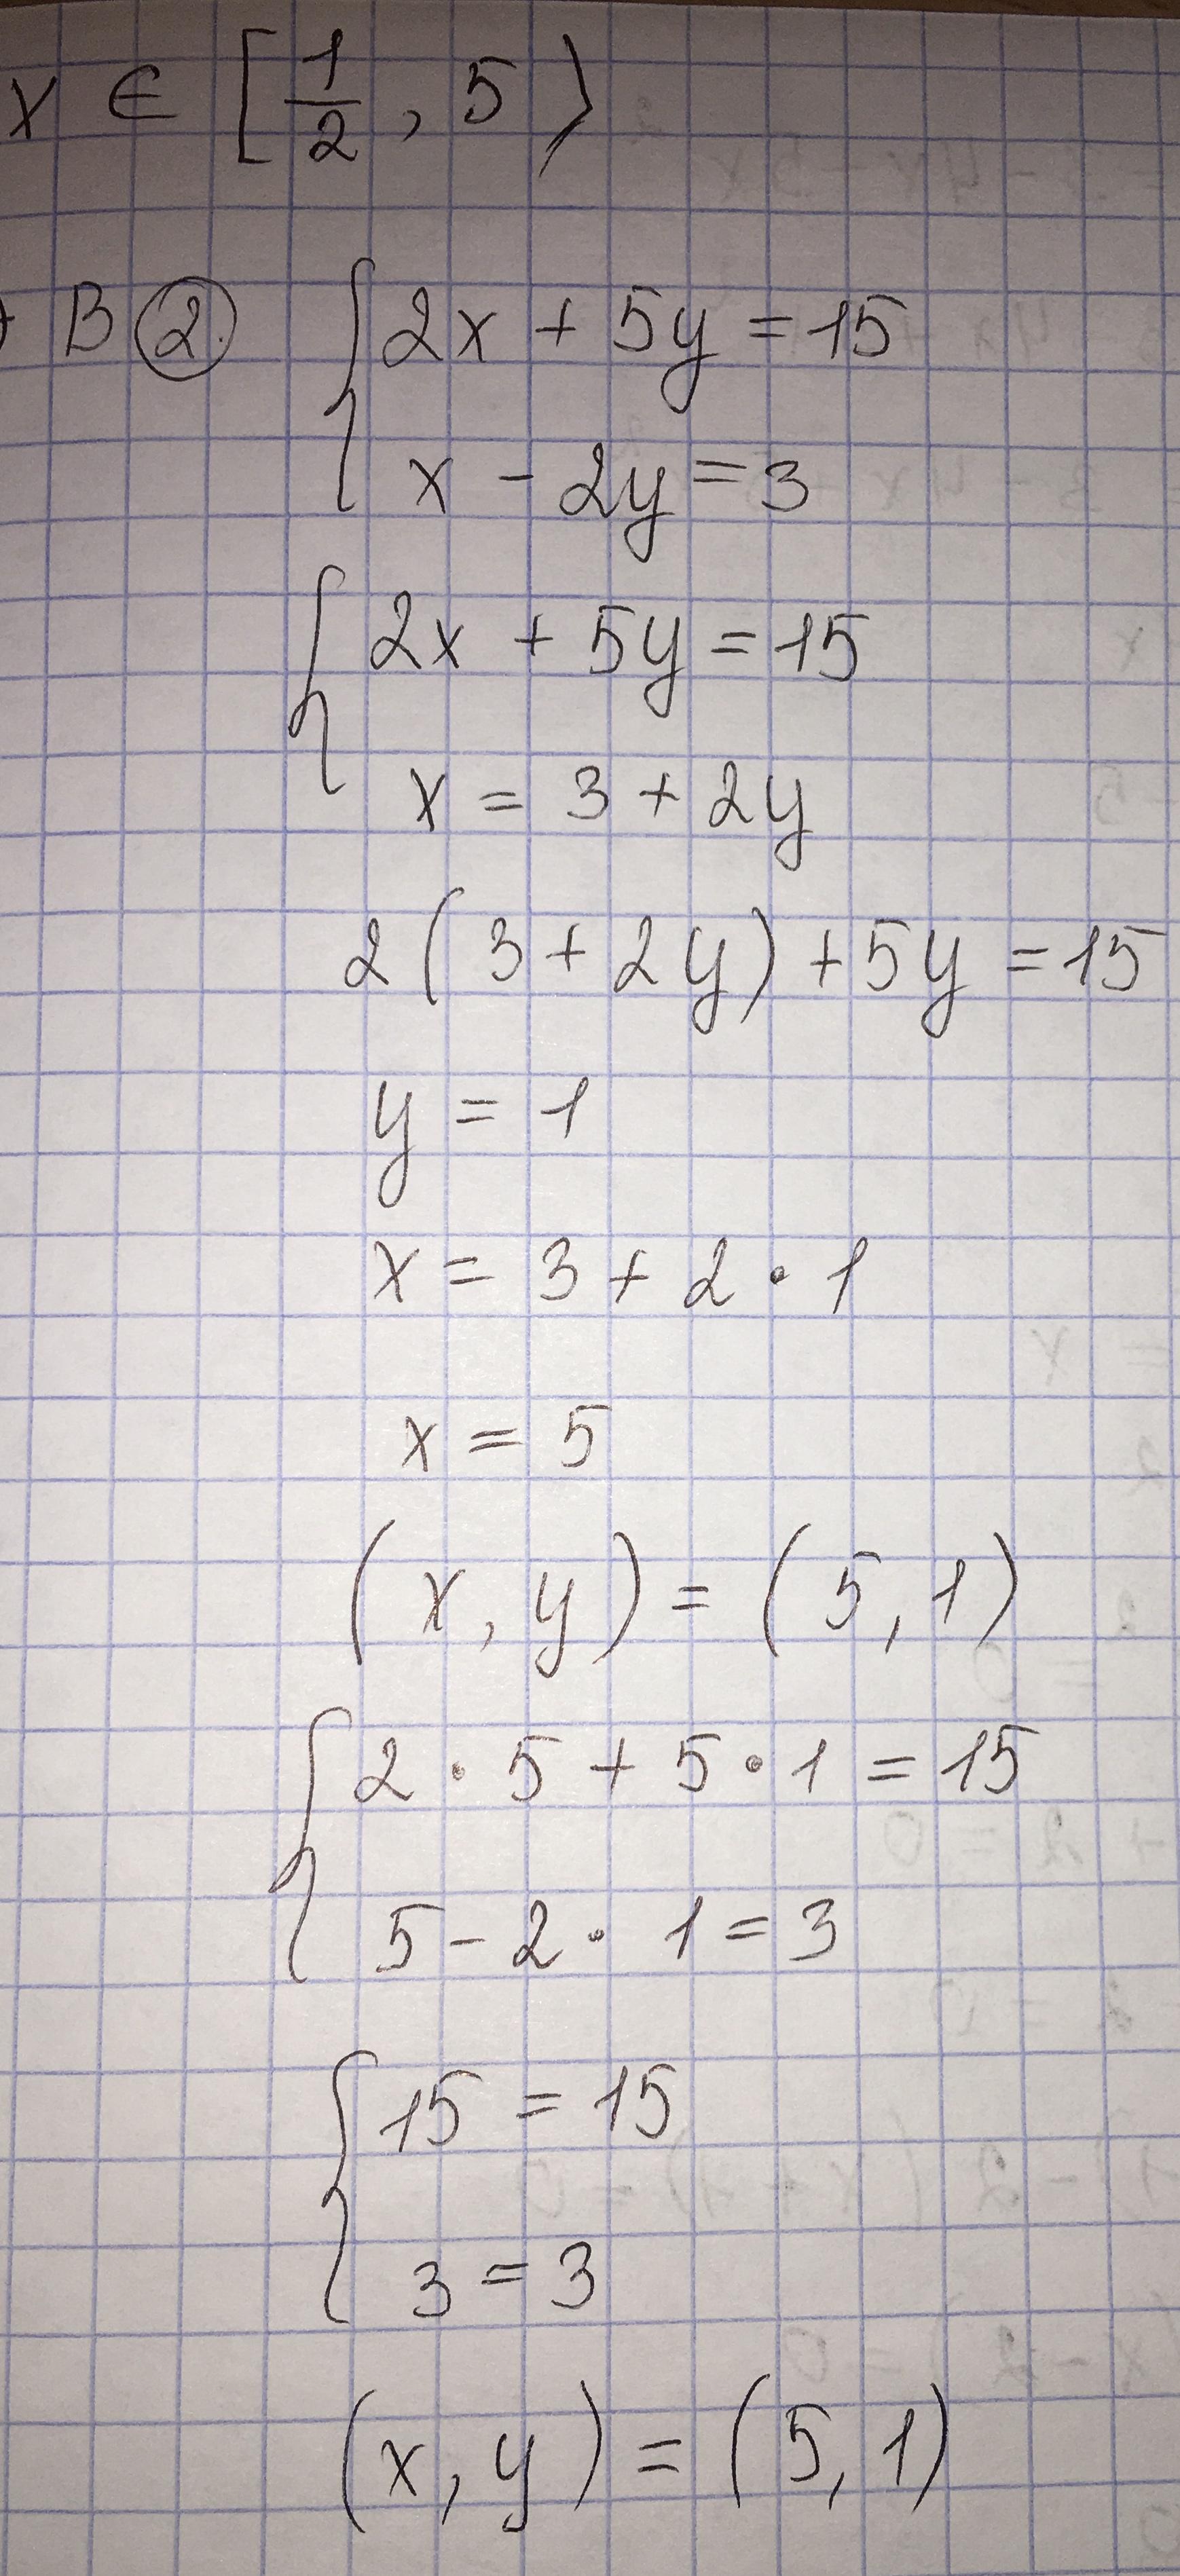 x ∈ [1/2, 5⟩
B ② { 2x + 5y = 15
x - 2y = 3
{ 2x + 5y = 15
x = 3 + 2y
2(3 + 2y) + 5y = 15
y = 1
x = 3 + 2 · 1
x = 5
(x, y) = (5, 1)
{ 2 · 5 + 5 · 1 = 15
5 - 2 · 1 = 3
{ 15 = 15
3 = 3
(x, y) = (5, 1)